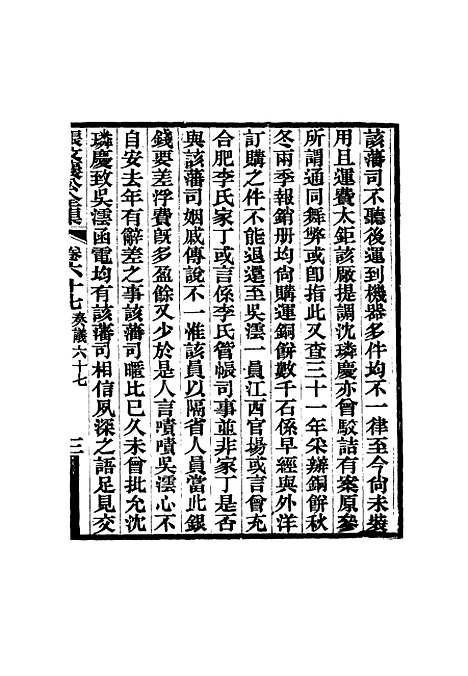 該藩司不聽後運到機器多件均不一律至今尙未裝
用且運費太鉅該厰提調沈璘慶亦曾駁詰有案原參
所謂通同舞弊或卽指此又查三十一年采辦銅餅秋
冬兩季報銷册均尙購運銅餅數千石係早經與外洋
訂購之件不能退還至吳澐一員江西官場或言曾充
合肥李氏家丁或言係李氏管帳司事並非家丁是否
與該藩司姻戚傳說不一惟該員以隔省人員當此銀
錢要差浮費旣多盈餘又少於是人言嘖嘖吳澐心不
自安去年有辭差之事該藩司曖比已久未曾批允沈
璘慶致吳澐函電均有該藩司相信夙深之語足見交
張文襄公全集
卷六十七
奏議六十七
三